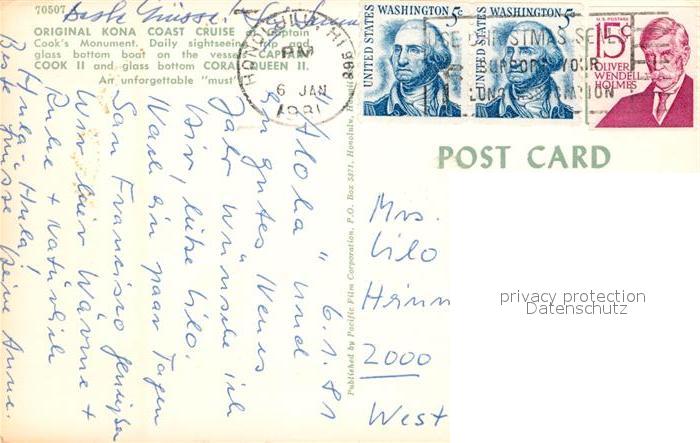 70507
Beste Grüsse
ORIGINAL KONA COAST CRUISE Captain
Cook's Monument. Daily sightseeing and
glass bottom boat on the vessels CAPTAIN
COOK II and glass bottom CORAL QUEEN II.
An unforgettable "must"
HONOLULU, HI 968
PM
6 JAN
1981
UNITED STATES
WASHINGTON 5c
UNITED STATES
WASHINGTON 5c
U.S. POSTAGE
15c
OLIVER
WENDELL
HOLMES
USE CHRISTMAS SEALS
SUPPORT YOUR
LUNG ASSOCIATION
POST CARD
Published by Pacific Film Corporation, P.O. Box 5871, Honolulu, Hawaii
6.1.81
"Aloha" und
ein gutes Neues
Jahr wünsche ich
Dir, liebe Lilo.
Nach ein paar Tagen
San Francisco geniessen
wir hier Wärme +
Ruhe + natürlich
Hula-Hula!
Beste Grüsse Deine Anne.
Mrs.
Lilo
Heinr
2000
West
privacy protection
Datenschutz